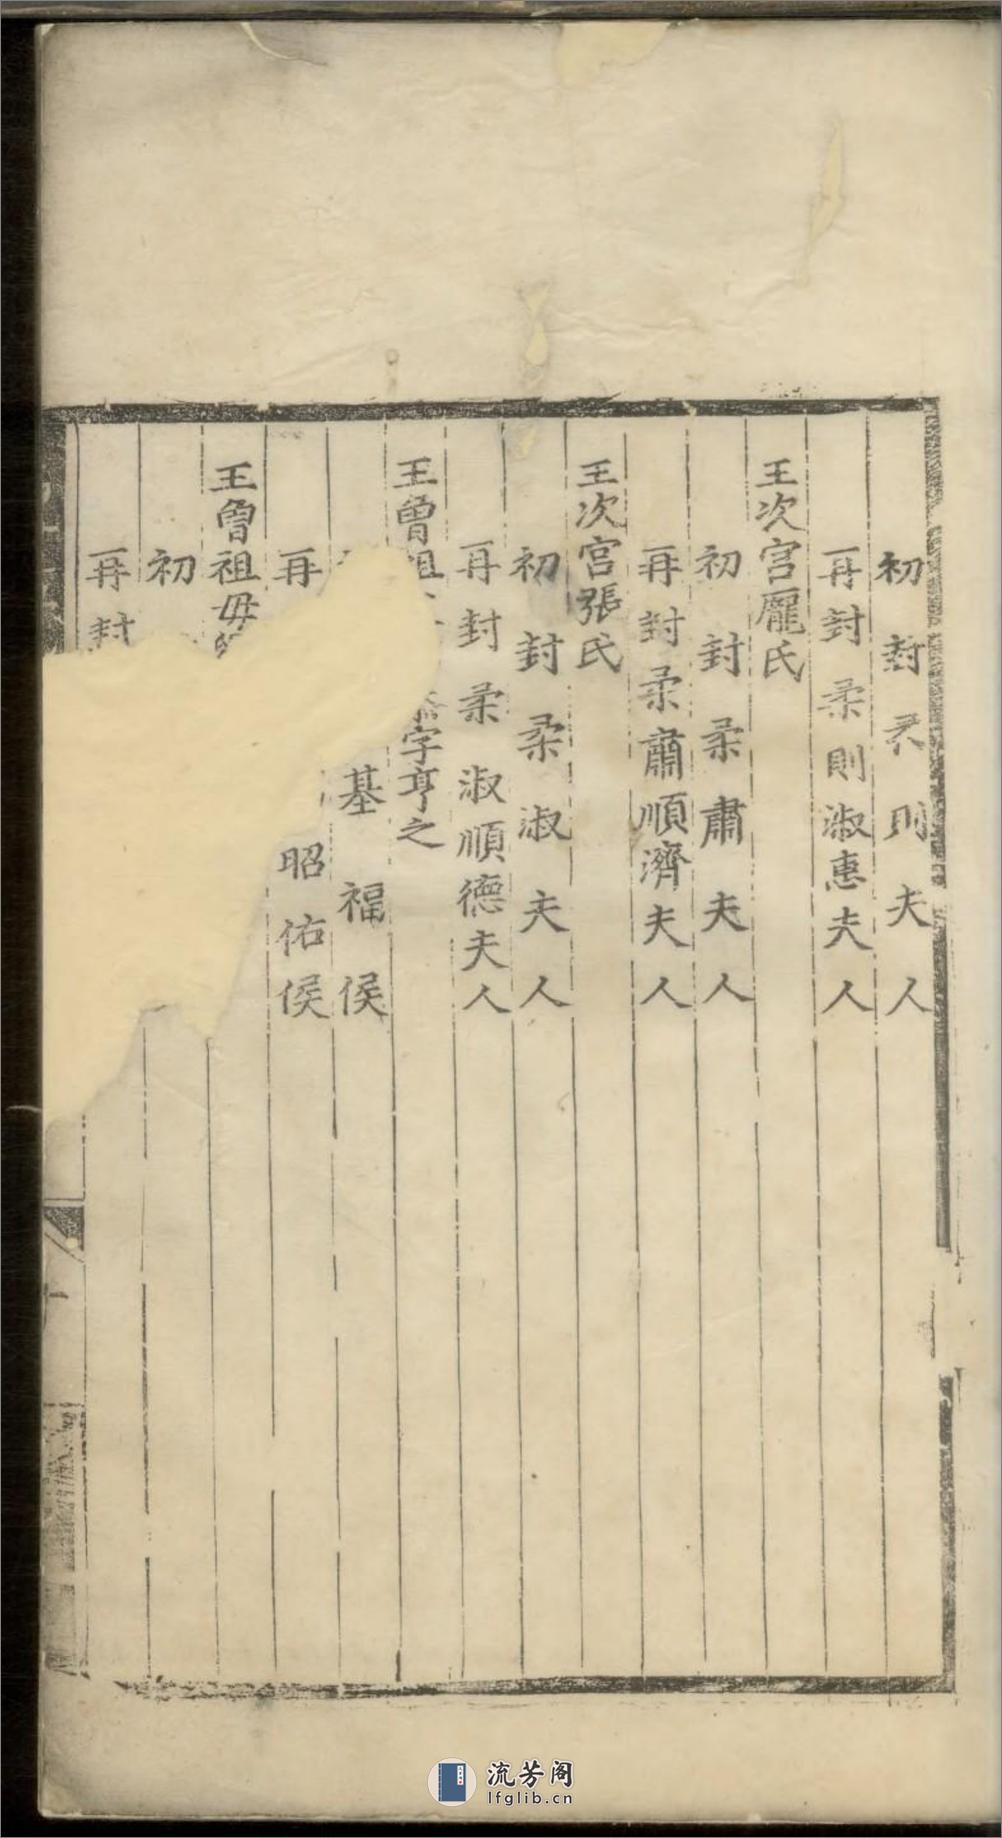 初封柔則夫人
再封柔則淑惠夫人
王次宫龎氏
初封柔肅夫人
再封柔肅順濟夫人
王次宫張氏
初封柔淑夫人
再封柔淑順德夫人
王曾祖 字亨之
基福侯
再 昭佑侯
王曾祖毋
初
再封
流芳阁
lfglib.cn